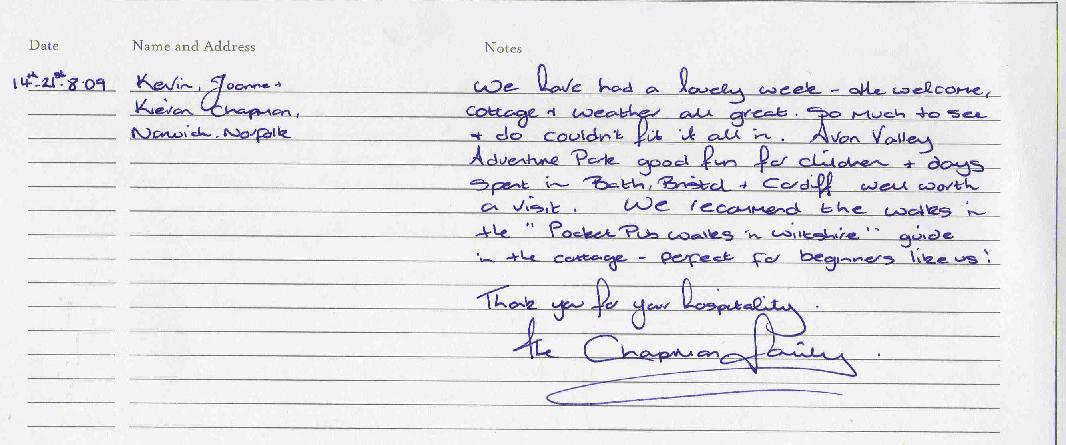 Date Name and Address Notes
14th-21st.8.09 Kevin, Joanne + We have had a lovely week - the welcome,
Kieran Chapman, cottage + weather all great. So much to see
Norwich. Norfolk + do couldn't fit it all in. Avon Valley
Adventure Park good fun for children + days
spent in Bath, Bristol + Cardiff well worth
a visit. We recommend the walks in
the "Pocket Pub walks in wiltshire" guide
in the cottage - perfect for beginners like us!
Thank you for your hospitality.
The Chapman family.